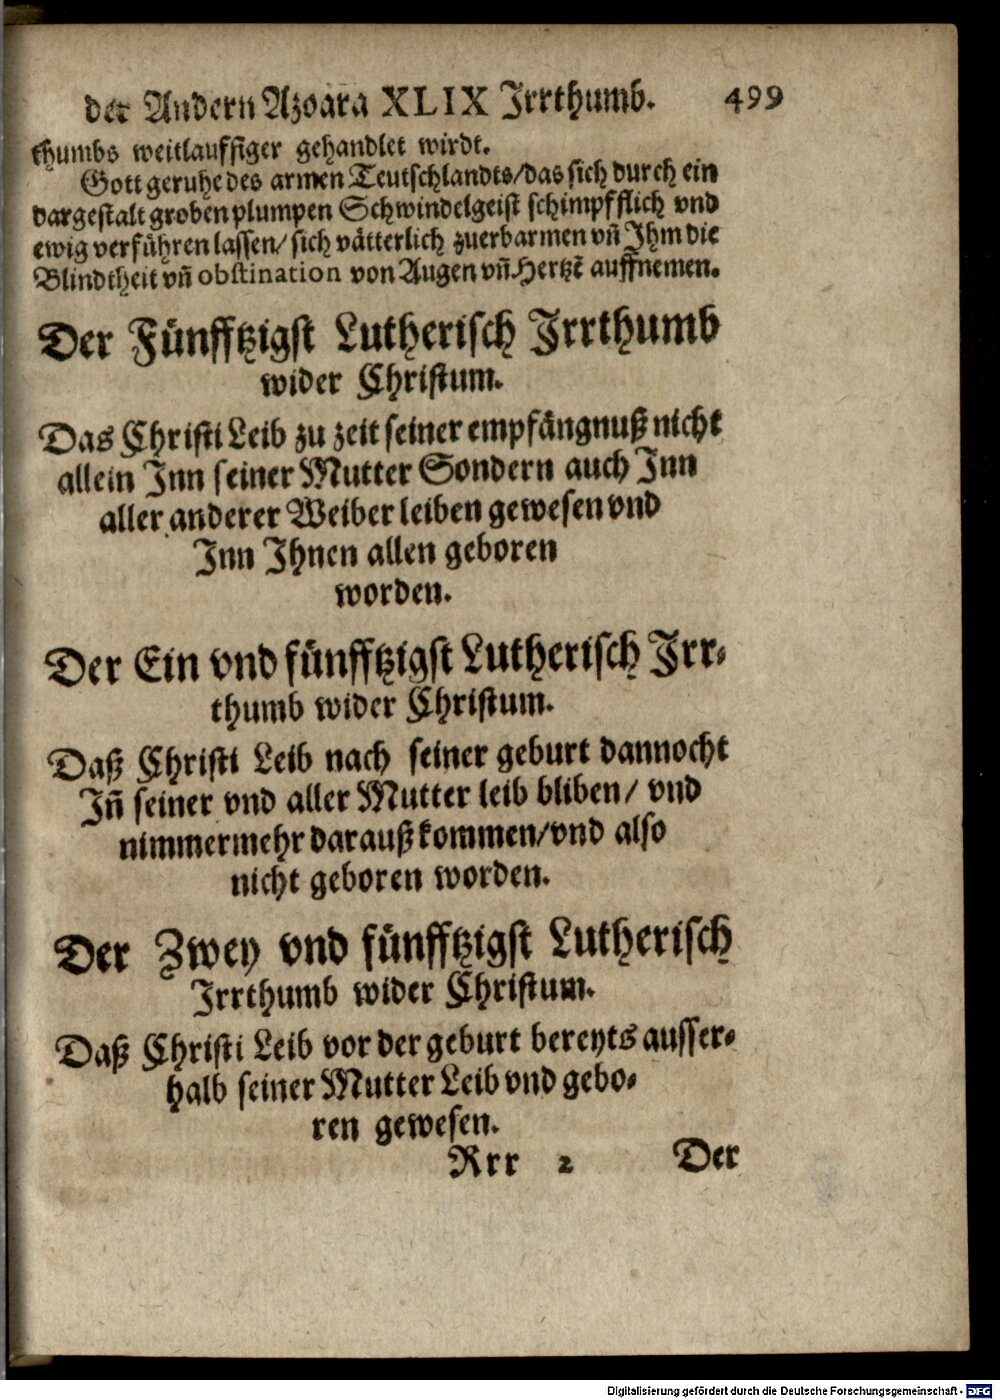 der Andern Azoara XLIX Jrrthumb. 499
thumbs weitlauffiger gehandlet wirdt.
Gott geruhe des armen Teutschlandts/das sich durch ein
dargestalt groben plumpen Schwindelgeist schimpfflich vnd
ewig verführen lassen/ sich vätterlich zuerbarmen vn̄ Jhm die
Blindtheit vn̄ obstination von Augen vn̄ Hertzē auffnemen.
Der Fünfftzigst Lutherisch Jrrthumb
wider Christum.
Das Christi Leib zu zeit seiner empfängnuß nicht
allein Jnn seiner Mutter Sondern auch Jnn
aller anderer Weiber leiben gewesen vnd
Jnn Jhnen allen geboren
worden.
Der Ein vnd fünfftzigst Lutherisch Jrr-
thumb wider Christum.
Daß Christi Leib nach seiner geburt dannocht
Jn̄ seiner vnd aller Mutter leib bliben/ vnd
nimmermehr darauß kommen/vnd also
nicht geboren worden.
Der Zwey vnd fünfftzigst Lutherisch
Jrrthumb wider Christum.
Daß Christi Leib vor der geburt bereyts ausser-
halb seiner Mutter Leib vnd gebo-
ren gewesen.
Rrr 2 Der
Digitalisierung gefördert durch die Deutsche Forschungsgemeinschaft - DFG